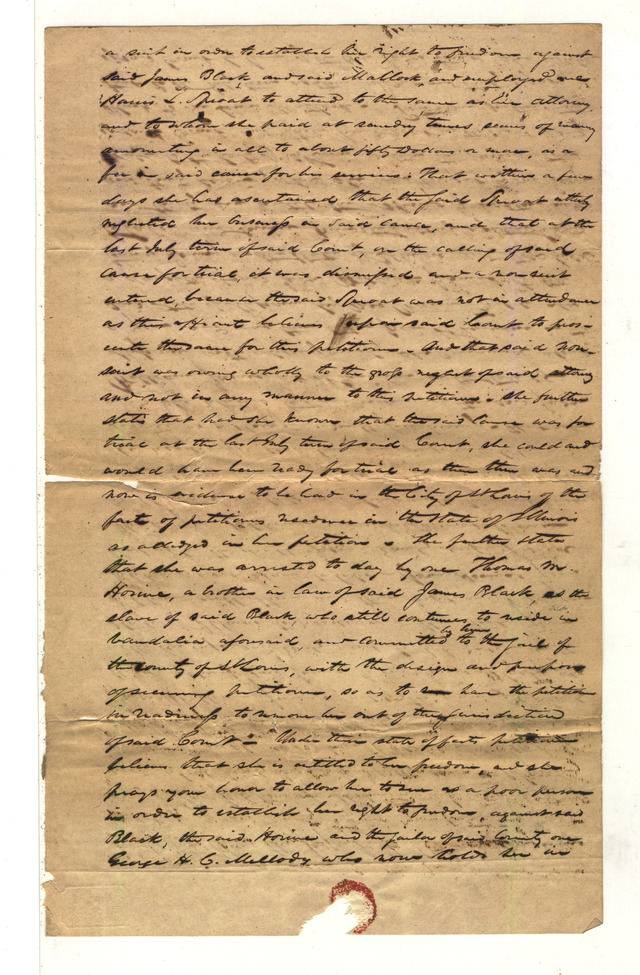 a suit in order to establish her right to freedom against
said James Black and said Mallock, and employed one
Harris L. Sproat to attend to the same as her attorney
and to whom she paid at sundry times sums of money
amounting in all to about fifty Dollars or more, as a
fee in said cause for his services. That within a few
days she has ascertained that the said Sproat utterly
neglected her business in said cause, and that at the
last July term of said Court, on the calling of said
cause for trial, it was dismissed and a non suit
entered, because the said Sproat was not in attendance
as this affiant believes upon said Court to pros-
ecute the same for this petitioner. And that said non-
suit was owing wholly to the gross neglect of said attorney
and not in any manner to this petitioner. She further
states that had she known that the said cause was for
trial at the last July term of said Court, she could and
would have been ready for trial as then there was and
now is evidence to be had in the City of St Louis of the
facts of petitioners residence in the State of Illinois
as alledged in her petition. She further states
that she was arrested to day by one Thomas M.
Horine, a brother in law of said James Black, as the
slave of said Black who still continues to reside in
Vandalia aforesaid, and committed by him to the Jail of
the county of St Louis, with the design and purpose
of securing petitioner, so as to have the petitioner
in readiness to remove her out of the jurisdiction
of said Court. Under this state of facts petitioner
believes that she is entitled to her freedom, and she
prays your honor to allow her to sue as a poor person
in order to establish her right to freedom, against said
Black, the said Horine and the jailor of said County one
George H. C. Mellody who now holds her in